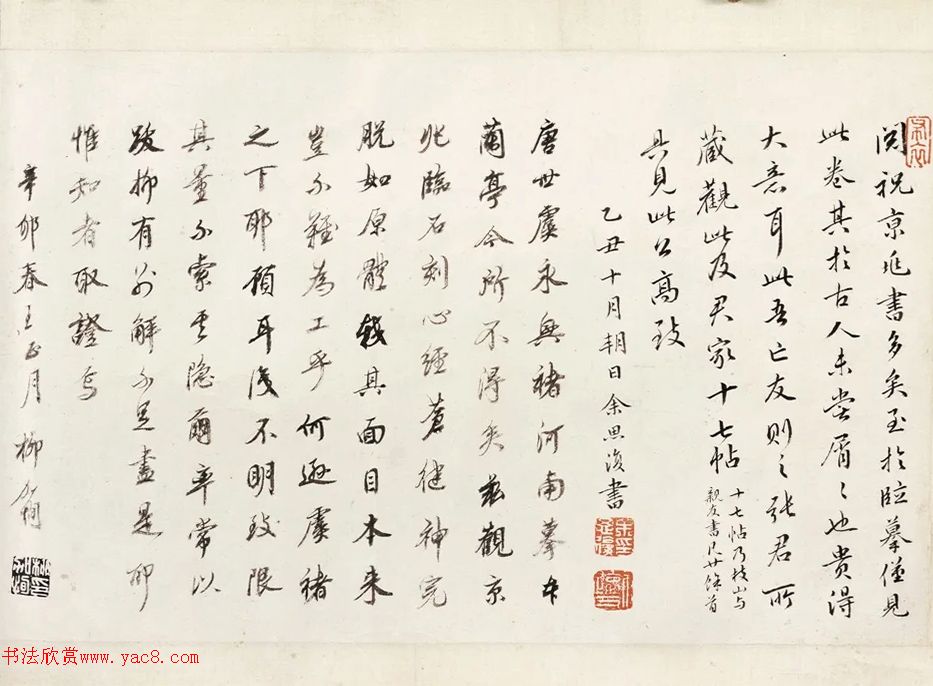 閱祝京兆書多矣至於臨摹僅見
此卷其於古人未嘗屑〻也貴得
大意耳此吾亡友則之張君所
藏觀此及君家十七帖
十七帖乃枝山与
親友書尺廿餘首
具見此公高致
乙丑十月朝日余思復書
唐世虞永興褚河南摹本
蘭亭今所不得矣茲觀京
兆臨石刻心經蒼健神完
脫如原體戟其面目本来
豈不難為工乎何遜虞褚
之下耶顧耳淺不明致限
其量不索其隐爾率常以
跋柳有別解不足盡是耶
惟知者取證焉
辛卯春王正月柳
书法欣赏www.yac8.com